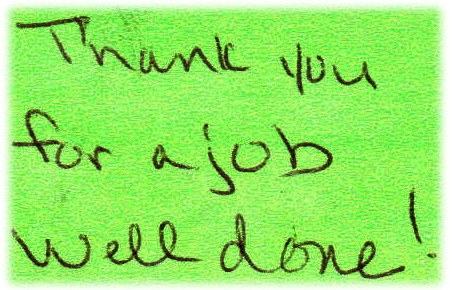 Thank you
for a job
well done!